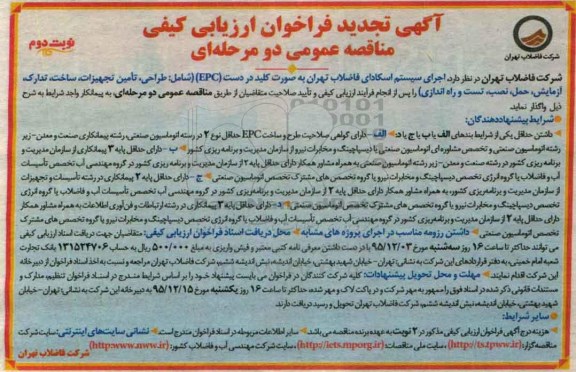 آگهی تجدید فراخوان ارزیابی کیفی
مناقصه عمومی دو مرحله‌ای
نوبت دوم
شرکت فاضلاب تهران
شرکت فاضلاب تهران در نظر دارد، اجرای سیستم اسکادای فاضلاب تهران به صورت کلید در دست (EPC) (شامل: طراحی، تأمین تجهیزات، ساخت، تدارک،
آزمایش، حمل، نصب، تست و راه اندازی) را پس از انجام فرآیند ارزیابی کیفی و تأیید صلاحیت متقاضیان از طریق مناقصه عمومی دو مرحله‌ای، به پیمانکار واجد شرایط به شرح
ذیل واگذار نماید.
شرایط پیشنهاددهندگان:
داشتن حداقل یکی از شرایط بندهای الف یا ب یا ج یا د: الف - دارای گواهی صلاحیت طرح و ساخت EPC حداقل نوع ۲ در رشته اتوماسیون صنعتی، رشته پیمانکاری صنعت و معدن - زیر
رشته اتوماسیون صنعتی و تخصص مشاوره‌ای اتوماسیون صنعتی یا دیسپاچینگ و مخابرات نیرو از سازمان مدیریت و برنامه‌ریزی کشور ب - دارای حداقل پایه ۳ پیمانکاری از سازمان مدیریت و
برنامه ریزی کشور در رشته صنعت و معدن - زیر رشته اتوماسیون صنعتی به همراه مشاور همکار دارای حداقل پایه ۲ از سازمان مدیریت و برنامه ریزی کشور در گروه مهندسی آب تخصص تأسیسات
آب و فاضلاب یا گروه انرژی تخصص دیسپاچینگ و مخابرات نیرو یا گروه تخصص های مشترک تخصص اتوماسیون صنعتی ج - دارای حداقل پایه ۲ پیمانکاری در رشته تأسیسات و تجهیزات
از سازمان مدیریت و برنامه‌ریزی کشور، به همراه مشاور همکار دارای حداقل پایه ۲ از سازمان مدیریت و برنامه‌ریزی کشور در گروه مهندسی آب تخصص تأسیسات آب و فاضلاب یا گروه انرژی
تخصص دیسپاچینگ و مخابرات نیرو یا گروه تخصص های مشترک تخصص اتوماسیون صنعتی د - دارای حداقل پایه ۳ پیمانکاری در رشته ارتباطات و فن آوری اطلاعات به همراه مشاور همکار
دارای حداقل پایه ۲ از سازمان مدیریت و برنامه‌ریزی کشور در گروه مهندسی آب تخصص تأسیسات آب و فاضلاب یا گروه انرژی تخصص دیسپاچینگ و مخابرات نیرو یا گروه تخصص های مشترک
تخصص اتوماسیون صنعتی داشتن رزومه مناسب در اجرای پروژه های مشابه محل دریافت اسناد فراخوان ارزیابی کیفی: متقاضیان جهت دریافت اسناد ارزیابی کیفی
می توانند حداکثر تا ساعت ۱۶ روز سه‌شنبه مورخ ۹۵/۱۲/۰۳ با در دست داشتن معرفی نامه کتبی معتبر و فیش واریزی به مبلغ ۵۰۰/۰۰۰ ریال به حساب ۱۳۱۵۲۴۷۰۶ بانک تجارت
شعبه امام خمینی، به دفتر قراردادهای این شرکت به نشانی: تهران - خیابان شهید بهشتی، خیابان اندیشه، نبش اندیشه ششم، شرکت فاضلاب تهران مراجعه و نسبت به اخذ اسناد فراخوان از دبیرخانه
این شرکت اقدام نمایند. مهلت و محل تحویل پیشنهادات: کلیه شرکت کنندگان در فراخوان می بایست پیشنهاد خود را بر اساس شرایط مندرج در اسناد فراخوان تنظیم، مدارک و
مستندات قانونی ذکر شده در اسناد فوق را ممهور به مهر شرکت و در پاکت لاک و مهر شده حداکثر تا ساعت ۱۶ روز یکشنبه مورخ ۹۵/۱۲/۱۵ به دبیرخانه این شرکت به نشانی: تهران - خیابان
شهید بهشتی، خیابان اندیشه، نبش اندیشه ششم، شرکت فاضلاب تهران تحویل و رسید دریافت دارند.
سایر شرایط:
هزینه درج آگهی فراخوان ارزیابی کیفی مذکور در ۲ نوبت به عهده برنده مناقصه می باشد سایر اطلاعات مربوطه در اسناد فراخوان مندرج است. نشانی سایت‌های اینترنتی: سایت شرکت
مناقصه گزار: (http://ts.tpww.ir)، سایت ملی مناقصات: (http://iets.mporg.ir)، سایت شرکت مهندسی آب و فاضلاب کشور: (http:www.nww.ir)
شرکت فاضلاب تهران